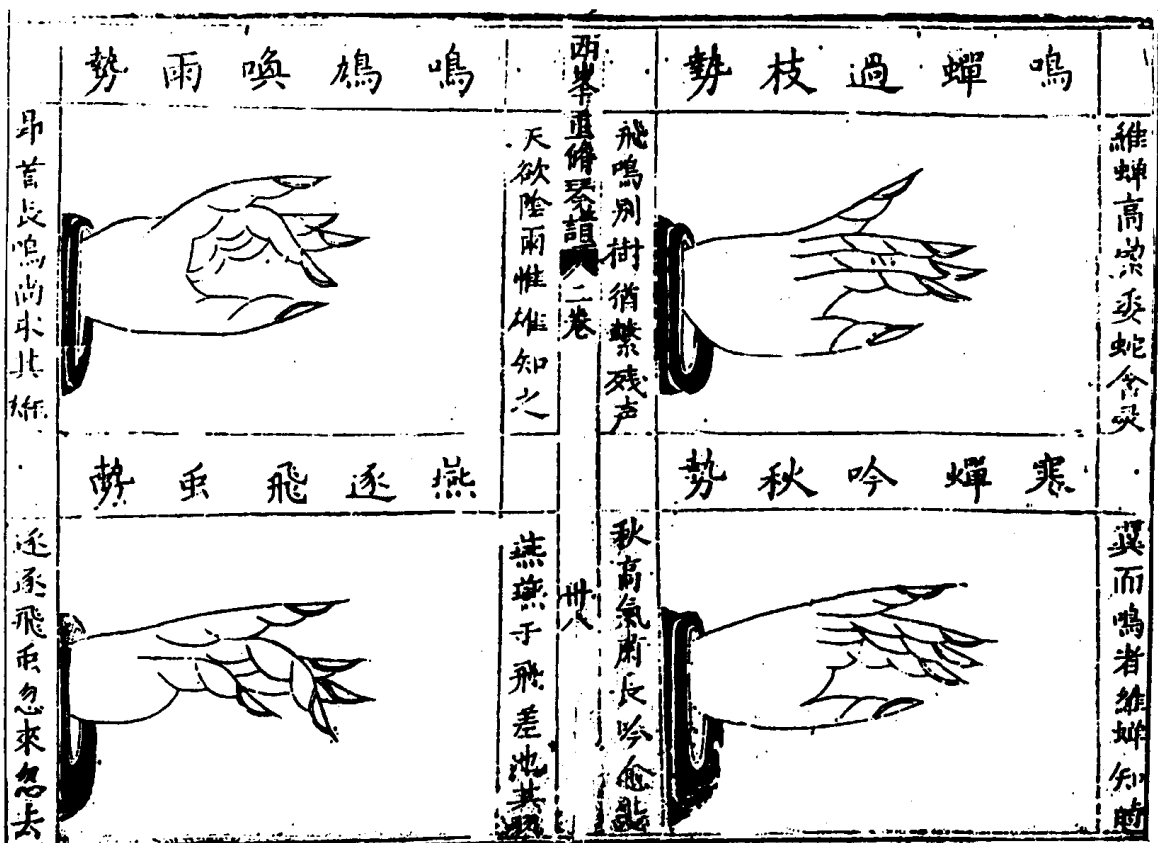 鳴蟬過枝勢
維蝉高潔委蛇含灵
飛鳴別樹猶繫残声
寒蟬吟秋勢
翼而鳴者維蝉知時
秋高氣肅長吟愈
西峯重脩琴譜 二卷
卅八
鳴鳩喚雨勢
天欲陰雨惟雄知之
昂首長鳴尚求其雌
燕逐飛䖝勢
燕燕于飛差池其
逐逐飛䖝忽來忽去